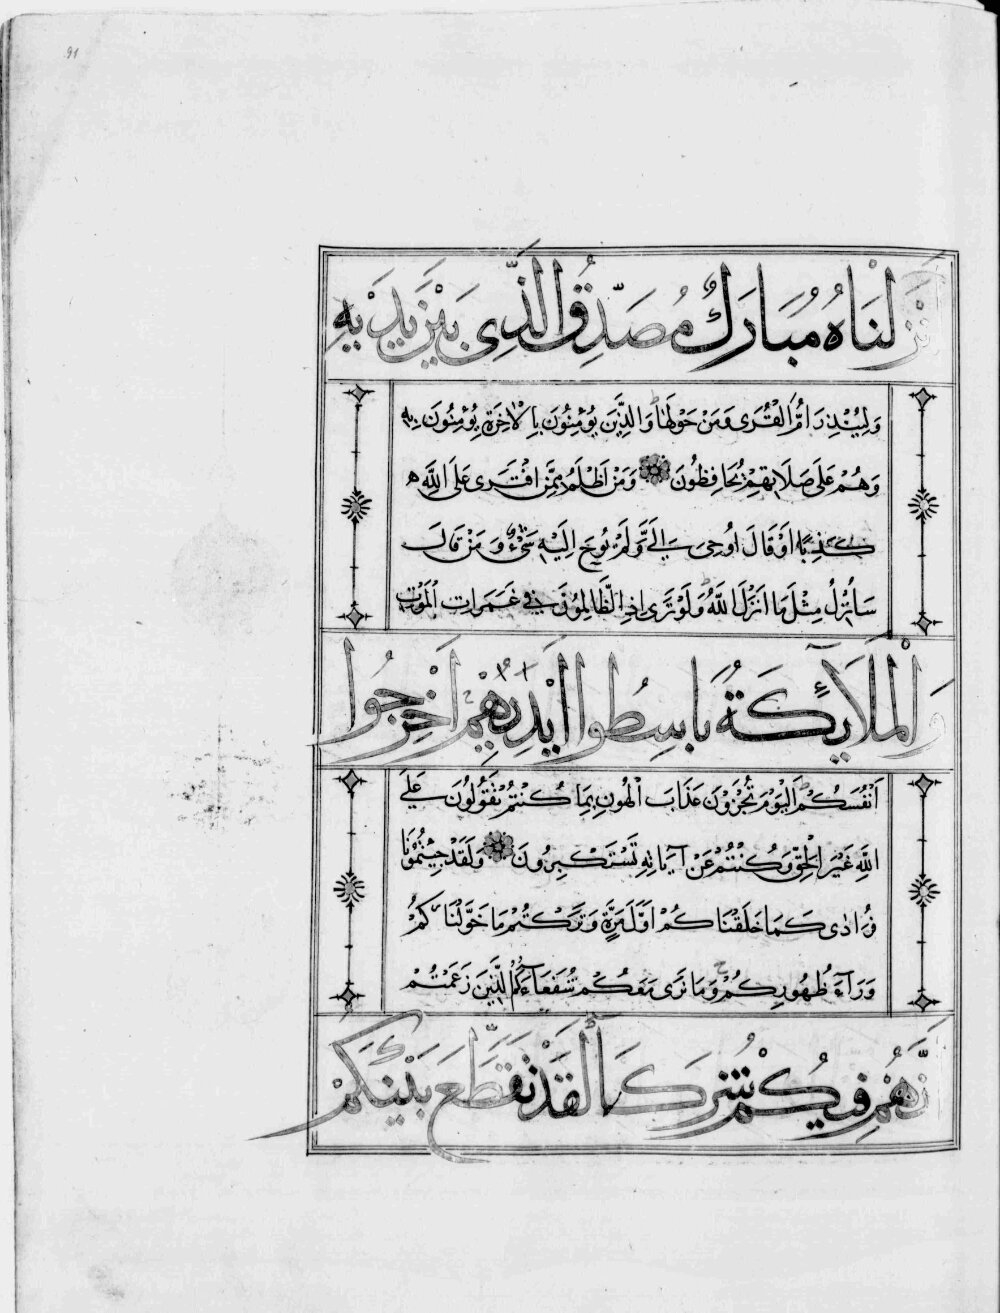 91
نزلْنَاهُ مُبَارَكٌ مُصَدِّقُ الَّذِي بَيْنَ يَدَيْهِ
وَلِيُنْذِرَ اُمَّ الْقُرَى وَمَنْ حَوْلَهَا وَالَّذِينَ يُؤْمِنُونَ بِالْاٰخِرَةِ يُؤْمِنُونَ بِهِ
وَهُمْ عَلَى صَلَاتِهِمْ يُحَافِظُونَ وَمَنْ اَظْلَمُ مِمَّنِ افْتَرَى عَلَى اللَّهِ
كَذِبًا اَوْ قَالَ اُوحِىَ اِلَىَّ وَلَمْ يُوحَ اِلَيْهِ شَيْءٌ وَمَنْ قَالَ
سَاُنْزِلُ مِثْلَ مَا اَنْزَلَ اللَّهُ وَلَوْ تَرَى اِذِ الظَّالِمُونَ فِي غَمَرَاتِ الْمَوْتِ
وَالْمَلَائِكَةُ بَاسِطُوا اَيْدِيهِمْ اَخْرِجُوا
اَنْفُسَكُمُ الْيَوْمَ تُجْزَوْنَ عَذَابَ الْهُونِ بِمَا كُنْتُمْ تَقُولُونَ عَلَى
اللَّهِ غَيْرَ الْحَقِّ وَكُنْتُمْ عَنْ آيَاتِهِ تَسْتَكْبِرُونَ وَلَقَدْ جِئْتُمُونَا
فُرَادٰى كَمَا خَلَقْنَاكُمْ اَوَّلَ مَرَّةٍ وَتَرَكْتُمْ مَا خَوَّلْنَاكُمْ
وَرَآءَ ظُهُورِكُمْ وَمَا نَرَى مَعَكُمْ شُفَعَآءَكُمُ الَّذِينَ زَعَمْتُمْ
اَنَّهُمْ فِيكُمْ شُرَكَاءُ لَقَدْ تَقَطَّعَ بَيْنَكُمْ